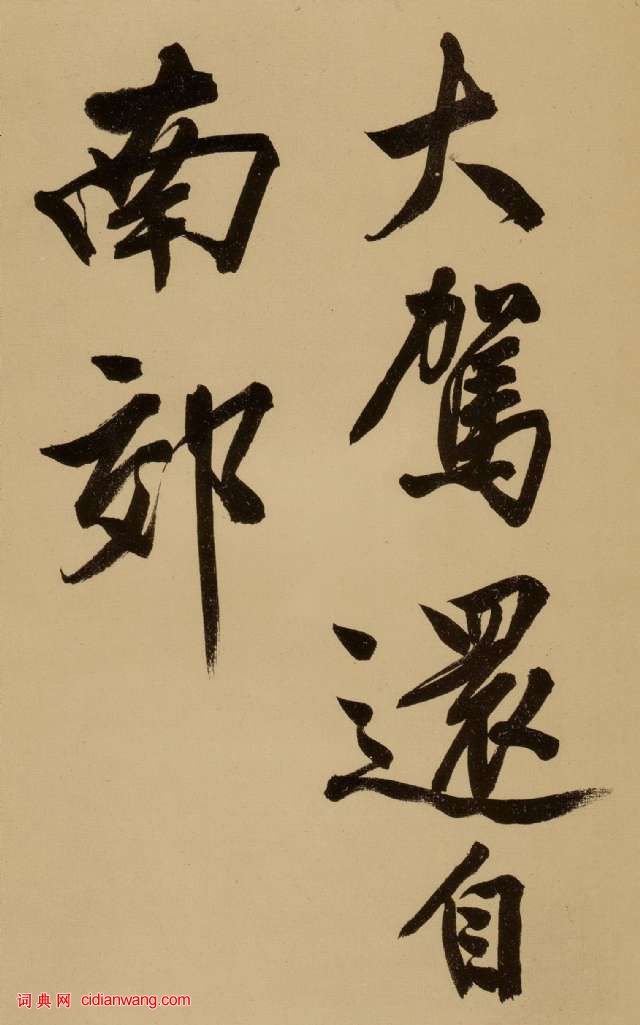 大駕還自
南郊
词典网 cidianwang.com